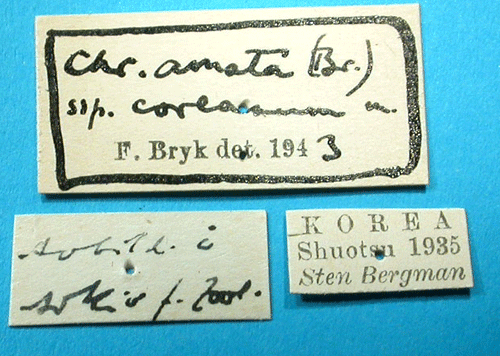 Chr. amata (Br.)
ssp. coreanum n.
F. Bryk det. 1943
KOREA
Shuotsu 1935
Sten Bergman
f. Zool.